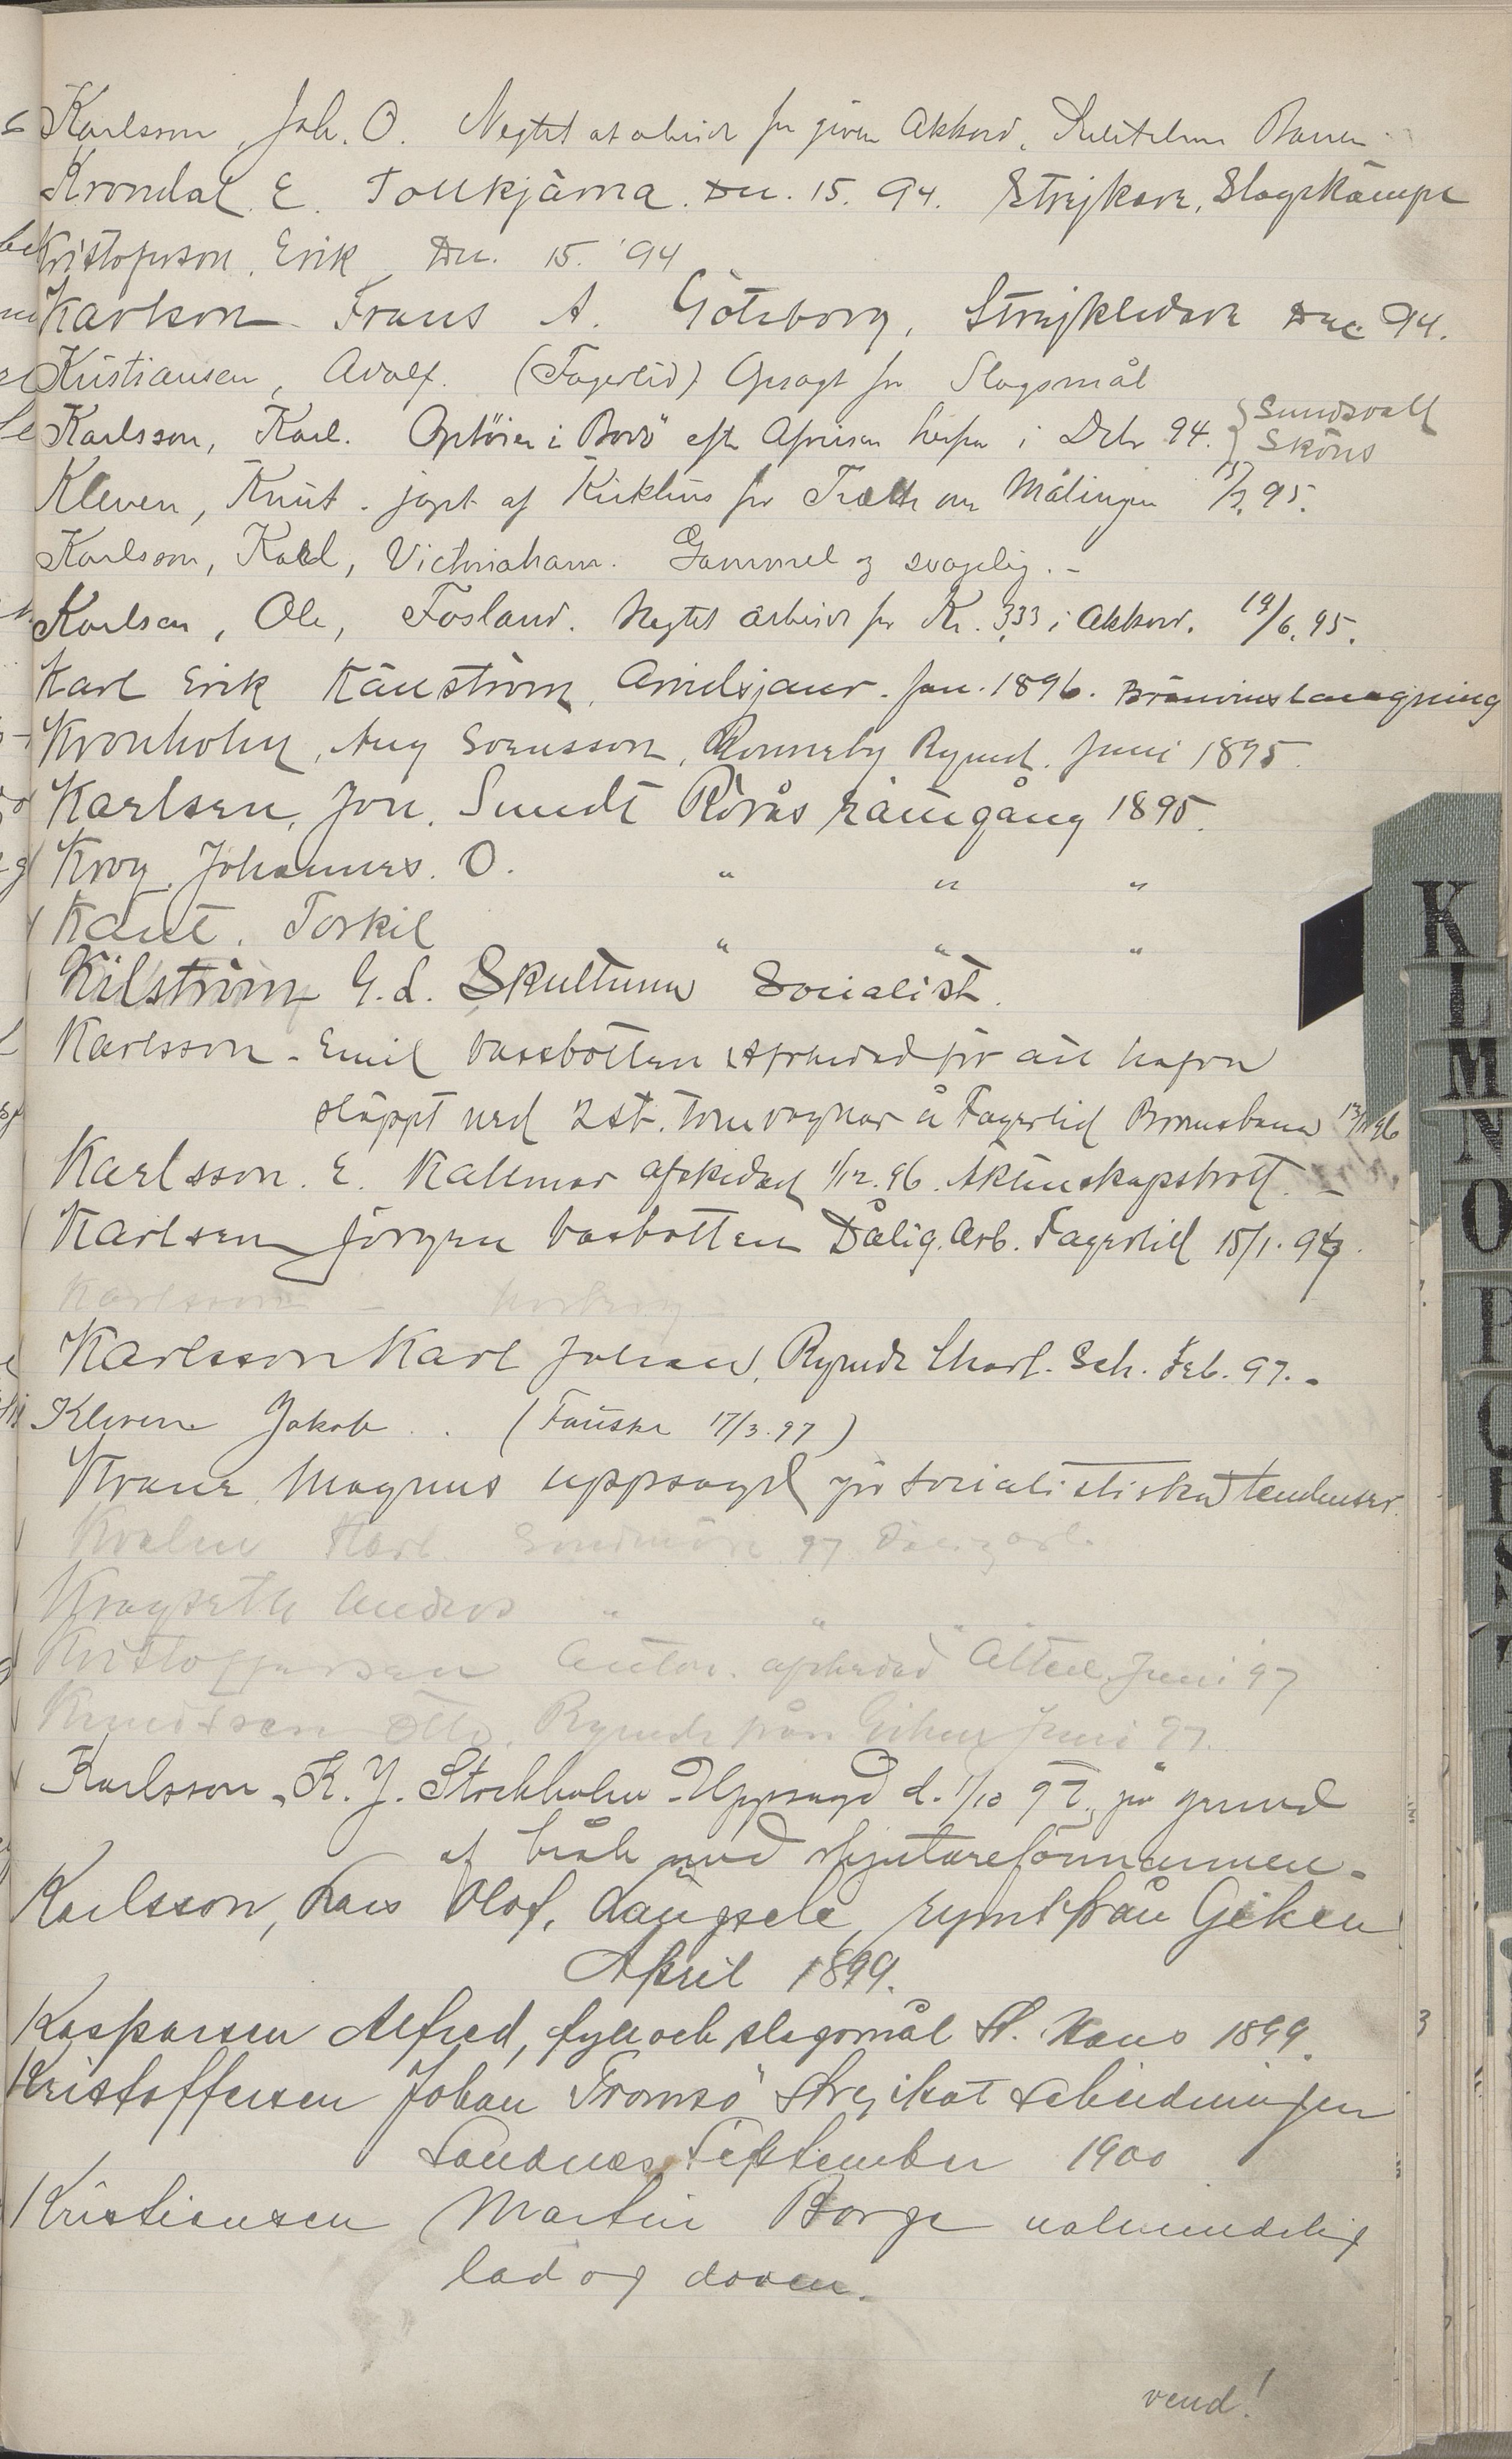 Karlsson, Joh. O. Negtet at arbeide for given Akkord, Sulitelma Banen
Krondal E. Tollkjärna. Dec. 15. 94. Strejkare, Slagskämpe
Kristoferson, Erik Dec. 15. '94
Karlson Frans A. Göteborg, Strejkledare Dec 94.
Kristiansen, Adolf. (Fagerlid) Opsagt for Slagsmål
Karlsson, Karl. Optöier i Bodö efter Afreisen herfra i Debr 94. } Sundsvall
Sköns
Kleven, Knut. jaget af for Trætte om Målingen 15/7. 95.
Karlsson, Karl, Victoriahavn. Gammel og svagelig. -
Karlsen, Ole, Fosland. Negtet arbeide for Kr. 3,33 i Akkord. 19/6. 95.
Karl Erik Känström, Arvidsjaur. Jan. 1896. Brännvinslangning
Kronholm, Aug Soensson, Ronneby Rymd. Juni 1895.
Karlsen, Jon. Sundt Rörås 1895.
Krog, Johannes. O. " " "
Kant. Torkil " " "
Kilström G. L. Skultuna Socialist.
Karlsson - Emil Vassbotten Afskedad för att hafva
släppt ned 2 st. tomvagnar å Fagerlid Bromsbana 13/11 96
Karlsson. E. Kallmar afskedad 1/12. 96. Äktenskapsbrott. -
Karlsen Jörgen Vasbotten Dålig. Arb. Fagerlid 15/1. 97.
Karlsson -
Karlsson Karl Johan, Rymde Charl. Sch. Feb. 97. -
Kleven Jakob . . (Fauske 17/3. 97)
Krane, Magnus uppsagd för socialistiska tendenser.
Kvalen Karl Söndmöre 97 Dålig arb.
Kragseth Anders " " " "
Kristoffersen Anton. afskedad Altee. Juni 97
Knudtsen Otto. Rymde från Giken Juni 97.
Karlsson, K. J. Stockholm Uppsagd d. 1/10 97, på grund
af bråk med skjutareförmannen.
Karlsson, Lars Olof, Långsele, rymt från Giken
April 1899.
Kasparsen Alfred, fylla och slagsmål St. Hans 1899.
Kristoffersen Johan Tromsö Strejkat
Sandnes September 1900
Kristiansen Martin Borge ualmindelig
lad og doven.
vend!
K
L
M
N
O
P